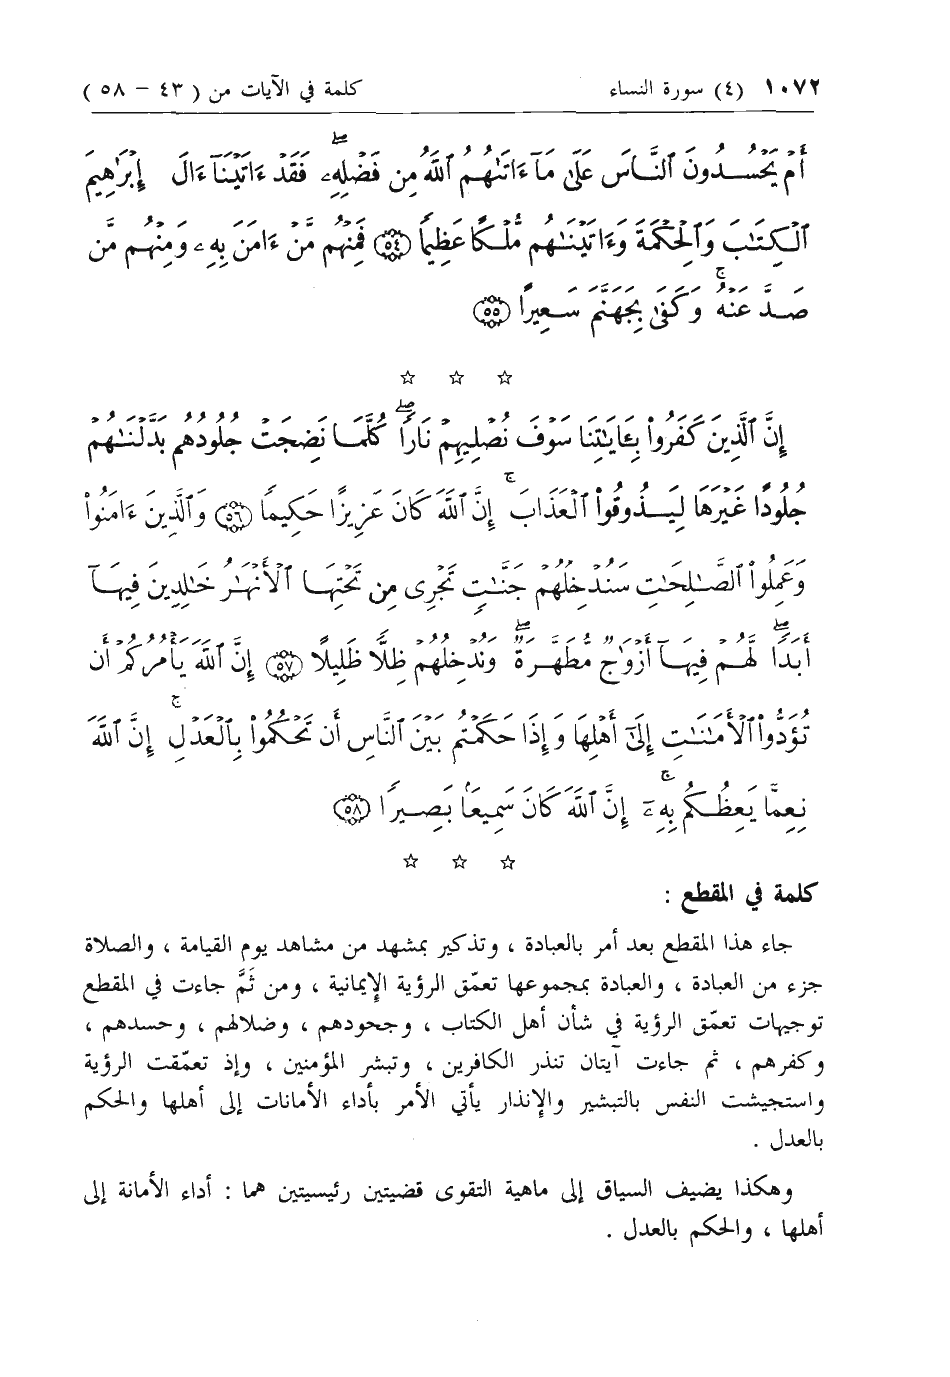 ١٠٧٢ (٤) سورة النساء كلمة في الآيات من ( ٤٣ – ٥٨ )
أَمْ يَحْسُدُونَ ٱلنَّاسَ عَلَىٰ مَآ ءَاتَىٰهُمُ ٱللَّهُ مِن فَضْلِهِۦۖ فَقَدْ ءَاتَيْنَآ ءَالَ إِبْرَٰهِيمَ
ٱلْكِتَٰبَ وَٱلْحِكْمَةَ وَءَاتَيْنَٰهُم مُّلْكًا عَظِيمًا ﴿٥٤﴾ فَمِنْهُم مَّنْ ءَامَنَ بِهِۦ وَمِنْهُم مَّن
صَدَّ عَنْهُۚ وَكَفَىٰ بِجَهَنَّمَ سَعِيرًا ﴿٥٥﴾
☆ ☆ ☆
إِنَّ ٱلَّذِينَ كَفَرُوا۟ بِـَٔايَٰتِنَا سَوْفَ نُصْلِيهِمْ نَارًاۖ كُلَّمَا نَضِجَتْ جُلُودُهُم بَدَّلْنَٰهُمْ
جُلُودًا غَيْرَهَا لِيَذُوقُوا۟ ٱلْعَذَابَۚ إِنَّ ٱللَّهَ كَانَ عَزِيزًا حَكِيمًا ﴿٥٦﴾ وَٱلَّذِينَ ءَامَنُوا۟
وَعَمِلُوا۟ ٱلصَّٰلِحَٰتِ سَنُدْخِلُهُمْ جَنَّٰتٍ تَجْرِى مِن تَحْتِهَا ٱلْأَنْهَٰرُ خَٰلِدِينَ فِيهَآ
أَبَدًاۖ لَّهُمْ فِيهَآ أَزْوَٰجٌ مُّطَهَّرَةٌۖ وَنُدْخِلُهُمْ ظِلًّا ظَلِيلًا ﴿٥٧﴾ إِنَّ ٱللَّهَ يَأْمُرُكُمْ أَن
تُؤَدُّوا۟ ٱلْأَمَٰنَٰتِ إِلَىٰٓ أَهْلِهَا وَإِذَا حَكَمْتُم بَيْنَ ٱلنَّاسِ أَن تَحْكُمُوا۟ بِٱلْعَدْلِۚ إِنَّ ٱللَّهَ
نِعِمَّا يَعِظُكُم بِهِۦٓۚ إِنَّ ٱللَّهَ كَانَ سَمِيعًۢا بَصِيرًا ﴿٥٨﴾
☆ ☆ ☆
كلمة في المقطع :
جاء هذا المقطع بعد أمر بالعبادة ، وتذكير بمشهد من مشاهد يوم القيامة ، والصلاة
جزء من العبادة ، والعبادة بمجموعها تعمّق الرؤية الإيمانية ، ومن ثَمَّ جاءت في المقطع
توجيهات تعمّق الرؤية في شأن أهل الكتاب ، وجحودهم ، وضلالهم ، وحسدهم ،
وكفرهم ، ثم جاءت آيتان تنذر الكافرين ، وتبشر المؤمنين ، وإذ تعمّقت الرؤية
واستجيشت النفس بالتبشير والإنذار يأتي الأمر بأداء الأمانات إلى أهلها والحكم
بالعدل .
وهكذا يضيف السياق إلى ماهية التقوى قضيتين رئيسيتين هما : أداء الأمانة إلى
أهلها ، والحكم بالعدل .